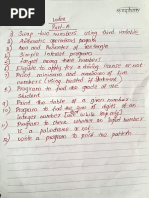 symphony
Index
Part-A
1) Swap two numbers using third variable
2) Arithmetic operations program
3) Area and Perimeter of rectangle
4) Simple interest program
5) Largest among three numbers
6) Eligible to apply for a driving license or not
7) Print minimum and maximum of five
numbers (using nested if statement)
8) Program to find the grade of the
student
9) Print the table of a given number
10) Program to find the sum of digits of an
integer number (use while loop only)
11) Program to check whether an input number
is a palindrome or not
12) Write a program to print the pattern